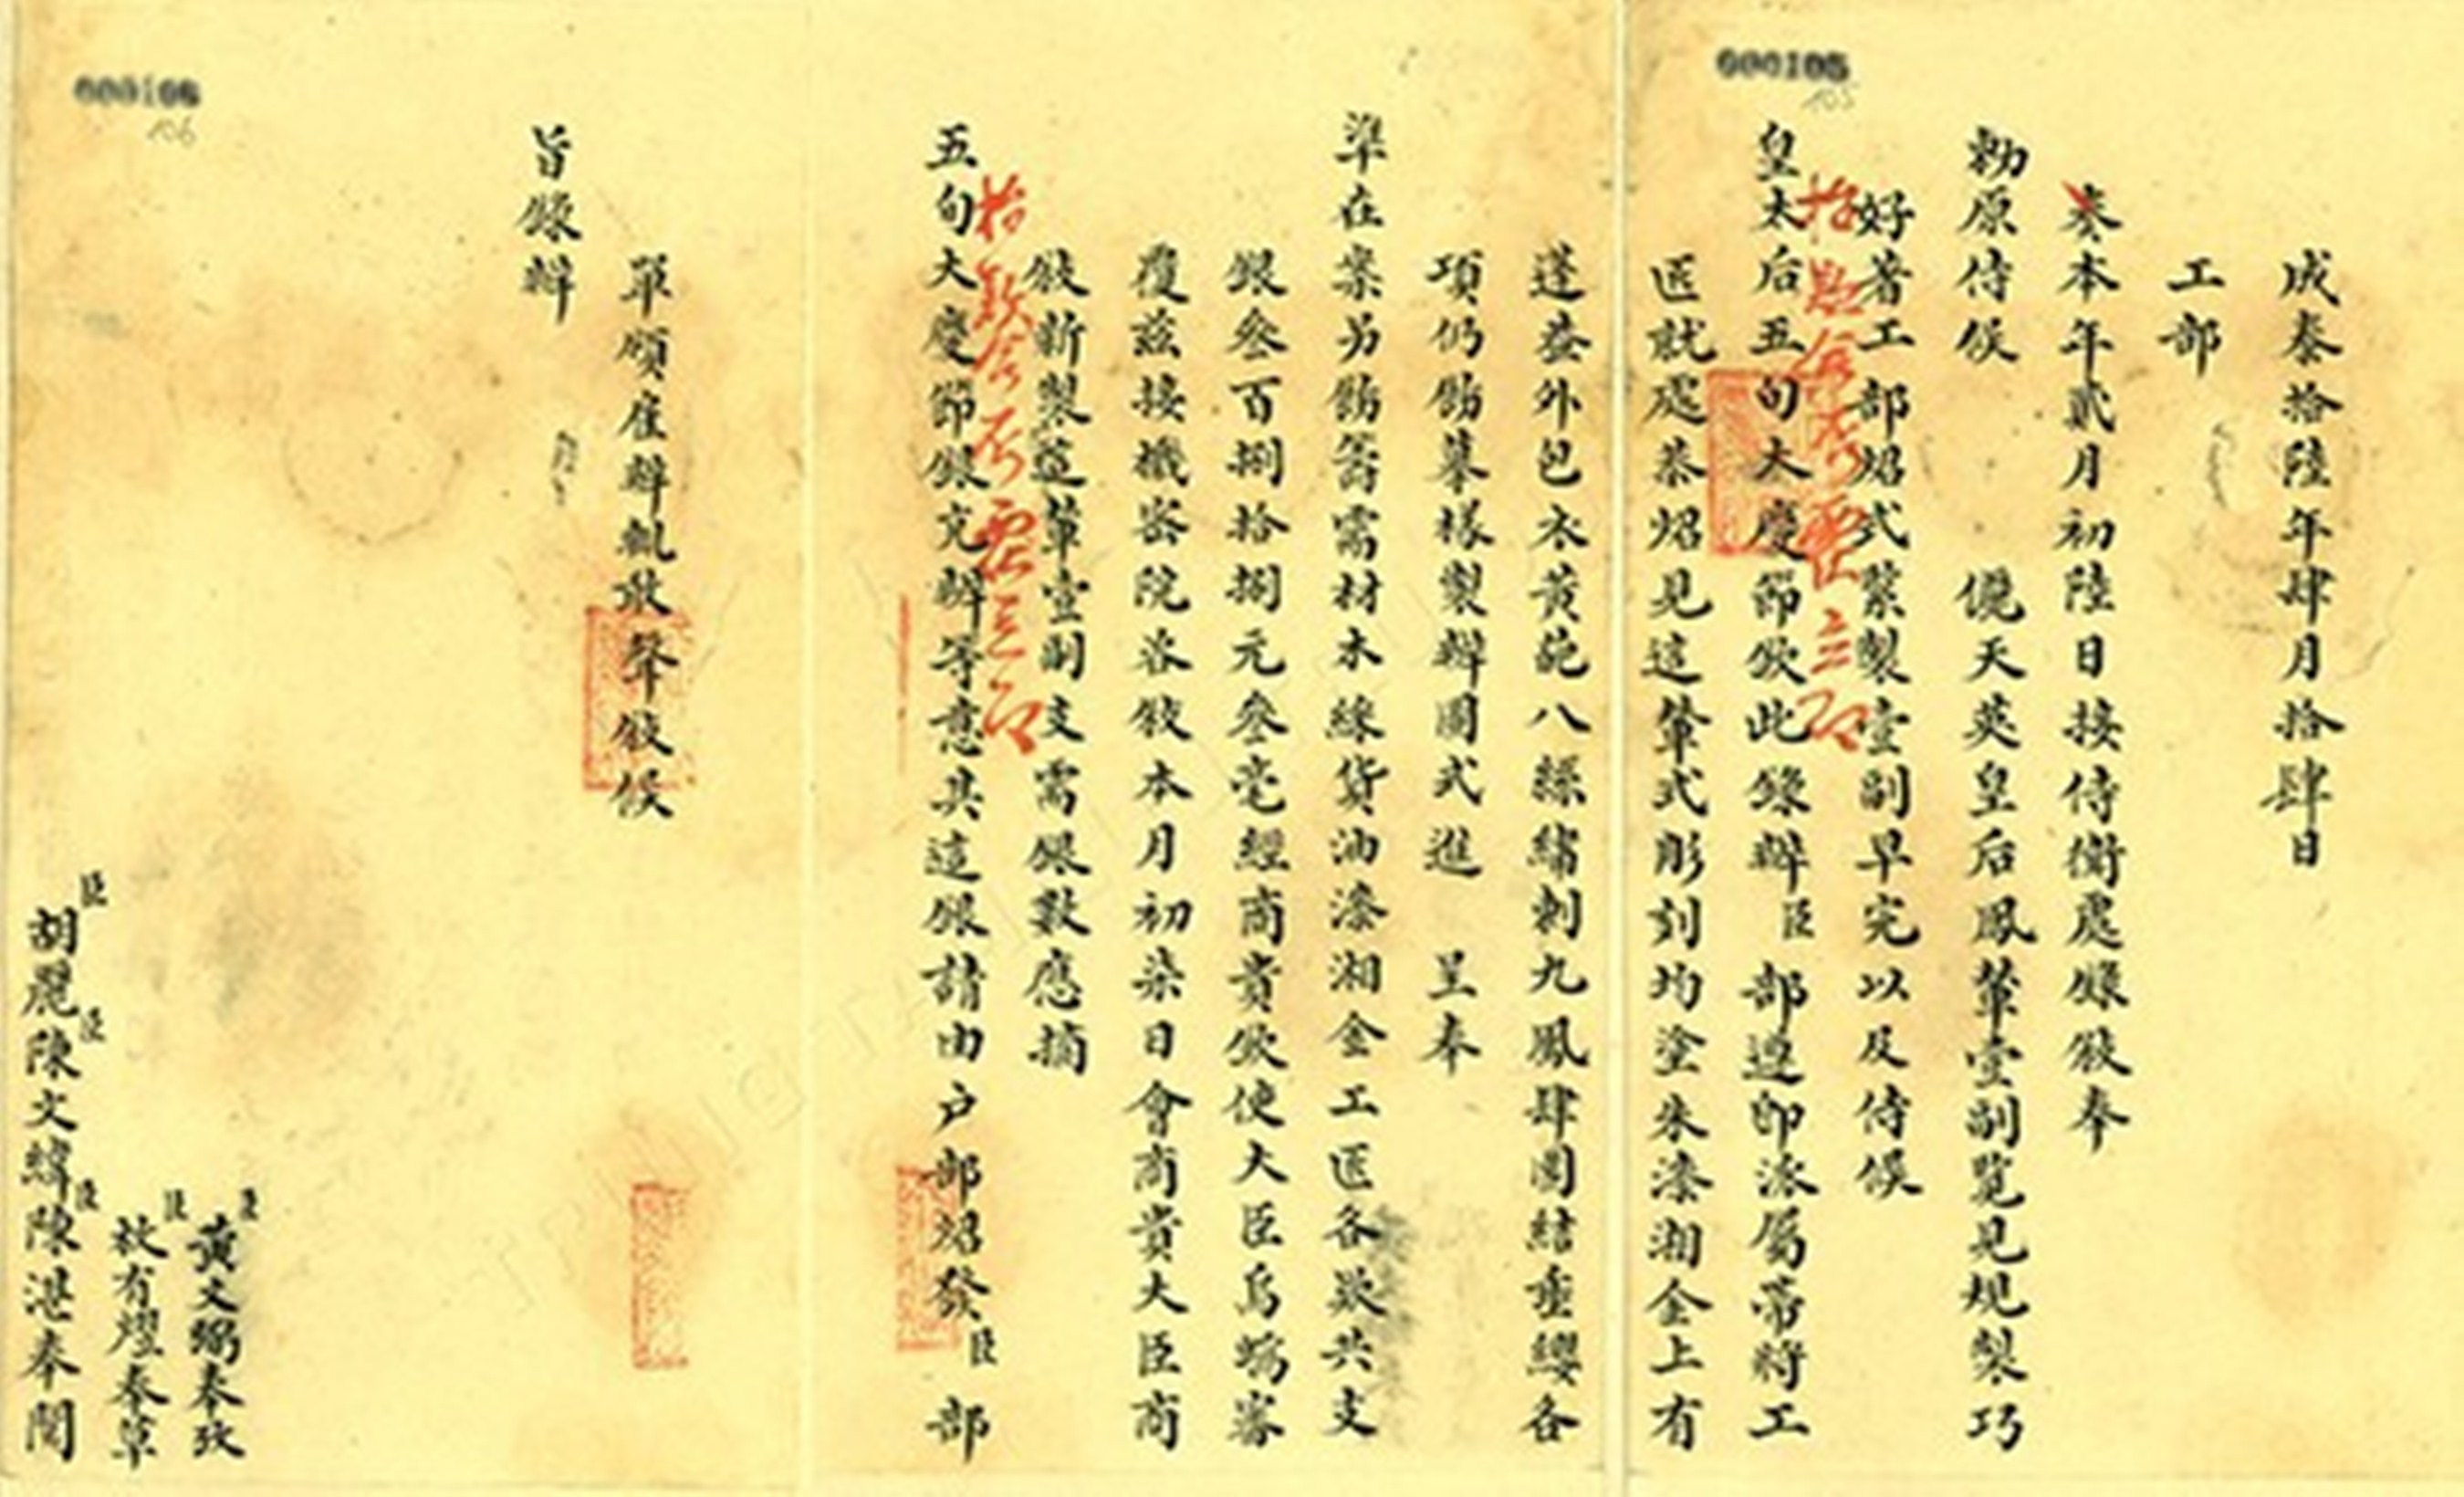 000105
105
成泰拾陸年肆月拾肆日
工部
奏本年貳月初陸日接侍衛處錄敘奉
勅原侍候 俔天英皇后鳳輦壹副覽見規製巧
好著工部炤式蒙製壹副早完以及侍候
皇太后五旬大慶節欽此錄辦臣部遵卽派屬帶將工
匠就處恭炤見這輦式彫刻均塗朱漆湘金上有
蓬葢外包衣黃 八絲繡刺九鳳肆圍結垂纓各
項仍飭摹樣製辦圖式進 呈奉
準在案另飭籌需材木線貨油漆湘金工匠各欵共支
銀叁百捌拾捌元叁毫經商貴欽使大臣烏 審
覆茲接機密院咨敘本月初柒日會商貴大臣商
敘新製這輦壹副支需銀數應摘
五旬大慶節銀充辦等意具這銀請由户部炤發臣部
單領庄辦輒敢聲敘候
旨錄辦
000106
106
臣黃文弼奉攷
臣枚有 奉草
臣胡 臣陳文緯臣陳湛奉閱